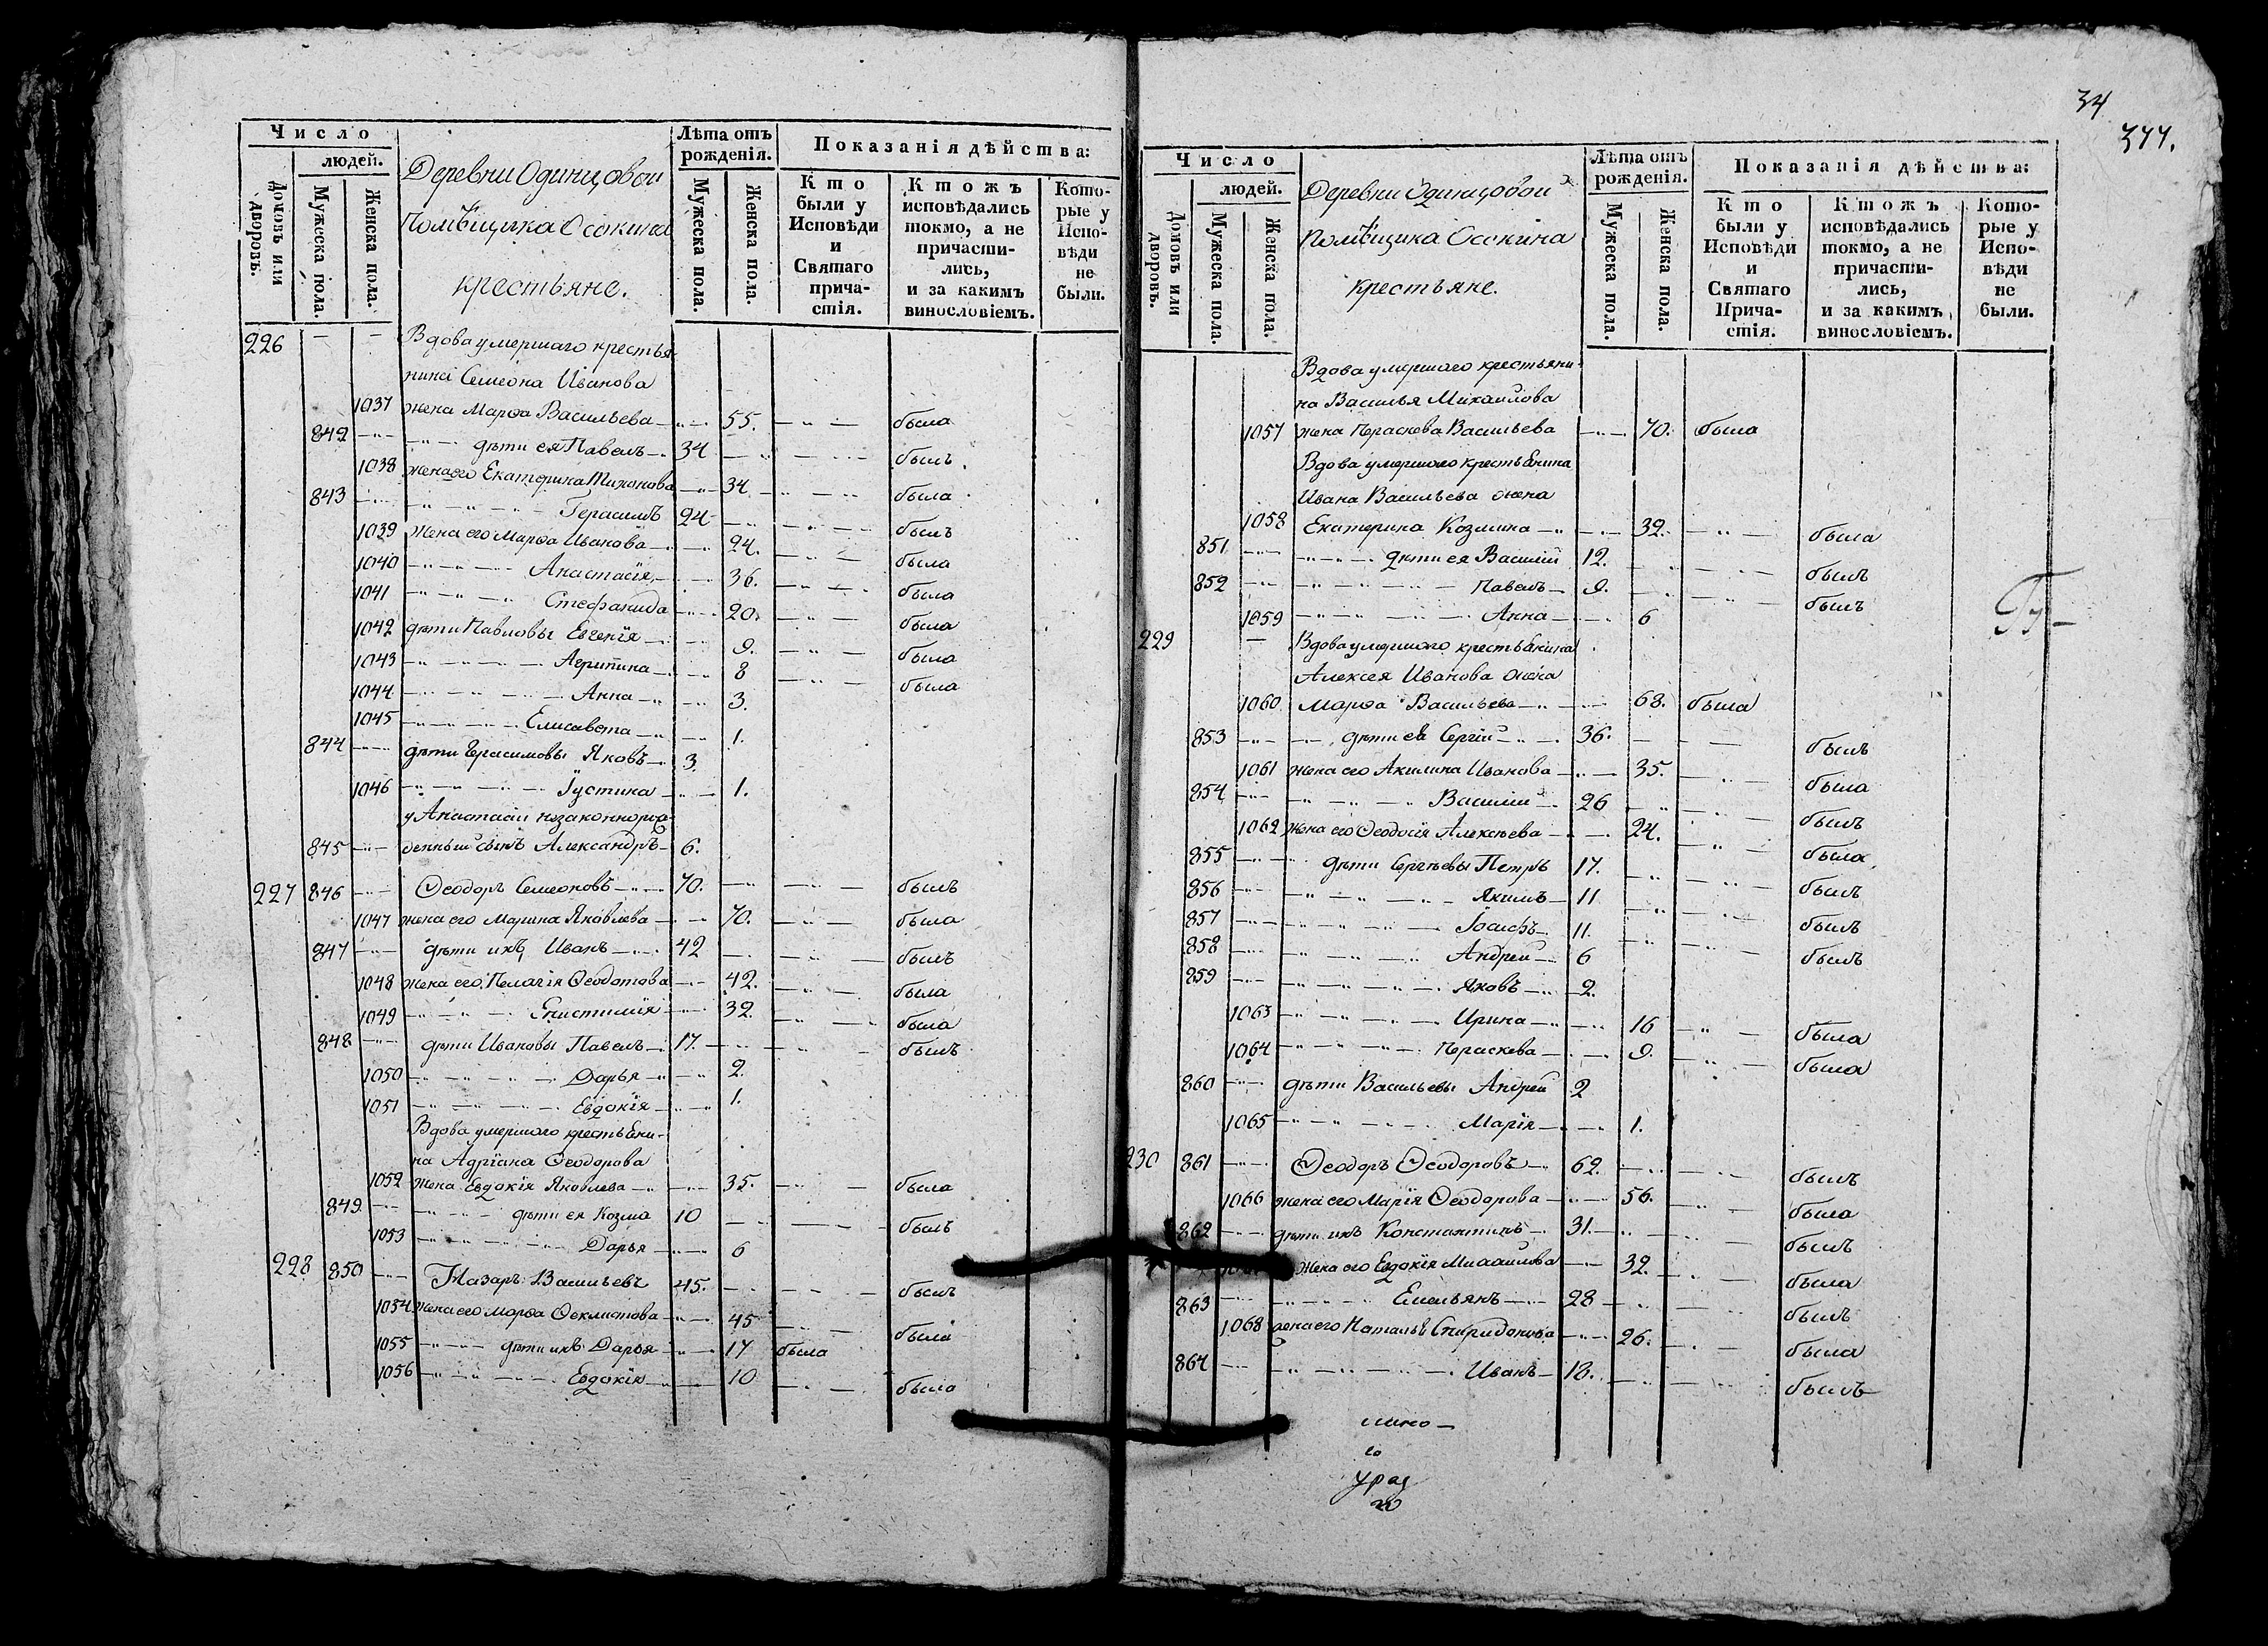 Число
людей.
Домовъ или дворовъ.
Мужеска пола.
Женска пола.
Деревни Одинцовой
Помѣщика Осокина
крестьяне.
Лѣта отъ рожденія.
Мужеска пола.
Женска пола.
Показанія дѣйства:
Кто были у Исповѣди и Святаго причастія.
Ктожъ исповѣдались токмо, а не причастились, и за какимъ винословіемъ.
Которые у Исповѣди не были.
226 — — Вдова умершаго крестья
нина Семеона Иванова
1037 жена Марѳа Васильева 55. была
842 дѣти ея Павелъ 34 былъ
1038 жена его Екатерина Тихонова 34 была
843 Герасимъ 24 былъ
1039 жена его Марѳа Иванова 24. была
1040 Анастасія 36. была
1041 Стефанида 20. была
1042 дѣти Павловы Евгенія 9. была
1043 Агрипина 8 была
1044 Анна 3.
1045 Елисавета 1.
844 дѣти Герасимовы Яковъ 3.
1046 Іустина 1.
у Анастасіи незаконнорож
845 денный сынъ Александръ 6.
227 846 Ѳеодоръ Семеоновъ 70. былъ
1047 жена его Марина Яковлева 70. была
847 дѣти ихъ Иванъ 42 былъ
1048 жена его Пелагія Ѳеодотова 42. была
1049 Епистимія 32 была
848 дѣти Ивановы Павелъ 17. былъ
1050 Дарья 2.
1051 Евдокія 1.
Вдова умершаго крестьѣни-
на Адріана Ѳеодорова
1052 жена Евдокія Яковлева 35. была
849 дѣти ея Козма 10 былъ
1053 Дарья 6
228 850 Назаръ Васильевъ 45. былъ
1054 жена его Марѳа Ѳеклистова 45 была
1055 дѣти ихъ Дарья 17 была
1056 Евдокія 10 была
34
377.
Число
людей.
Домовъ или дворовъ.
Мужеска пола.
Женска пола.
Деревни Одинцовой
Помѣщика Осокина
крестьяне.
Лѣта отъ рожденія.
Мужеска пола.
Женска пола.
Показанія дѣйства:
Кто были у Исповѣди и Святаго Причастія.
Ктожъ исповѣдались токмо, а не причастились, и за какимъ винословіемъ.
Которые у Исповѣди не были.
Вдова умершаго крестьяни-
на Василья Михаилова
1057 жена Параскева Васильева 70. была
Вдова умершаго крестьѣнина
Ивана Васильева жена
1058 Екатерина Козмина 32. была
851 дѣти ея Василій 12. былъ
852 Павелъ 9. былъ
1059 Анна 6
229 — Вдова умершаго крестьѣнина
Алексея Иванова жена
1060 Марѳа Васильева 68. была
853 дѣти ея Сергій 36. былъ
1061 жена его Акилина Иванова 35. была
854 Василій 26 былъ
1062 жена его Ѳеодосія Алексѣева 24. была
855 дѣти Сергѣевы Петръ 17. былъ
856 Якимъ 11 былъ
857 Іосифъ 11. былъ
858 Андрей 6
859 Яковъ 2.
1063 Ирина 16 была
1064 Параскева 9. была
860 дѣти Васильевы Андрей 2
1065 Марія 1.
230 861 Ѳеодоръ Ѳеодоровъ 62. былъ
1066 жена его Марія Ѳеодорова 56. была
862 дѣти ихъ Константинъ 31. былъ
жена его Евдокія Михаилова 32. была
863 Емельянъ 28 былъ
1068 жена его Наталья Спиридонова 26. была
864 Иванъ 18. былъ